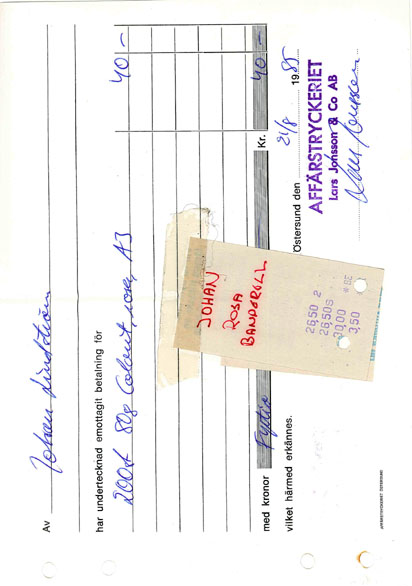 Av Johan Lindström
har undertecknad emottagit betalning för
200st 80g Colorit, rosa, A3 40 -
med kronor Fyrtio Kr. 40 -
vilket härmed erkännes. Östersund den 21/8 1985
AFFÄRSTRYCKERIET
Lars Jonsson & Co AB
JOHAN
ROSA
BANDEROLL
26,50 2
26,50 S
30,00
3,50